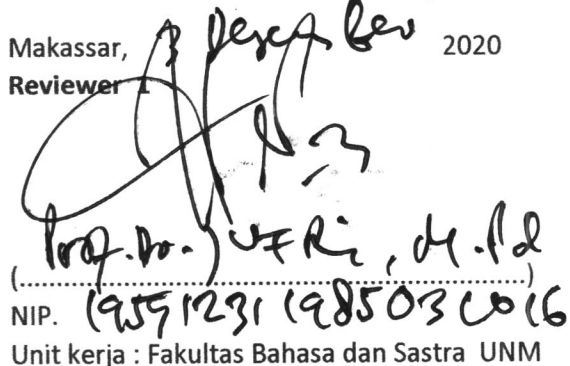 Makassar, 3 Desember 2020
Reviewer 1
Prof. Dr. Jufri, M.Pd
(..........................................................................)
NIP. 19591231 198503 1 016
Unit kerja : Fakultas Bahasa dan Sastra UNM